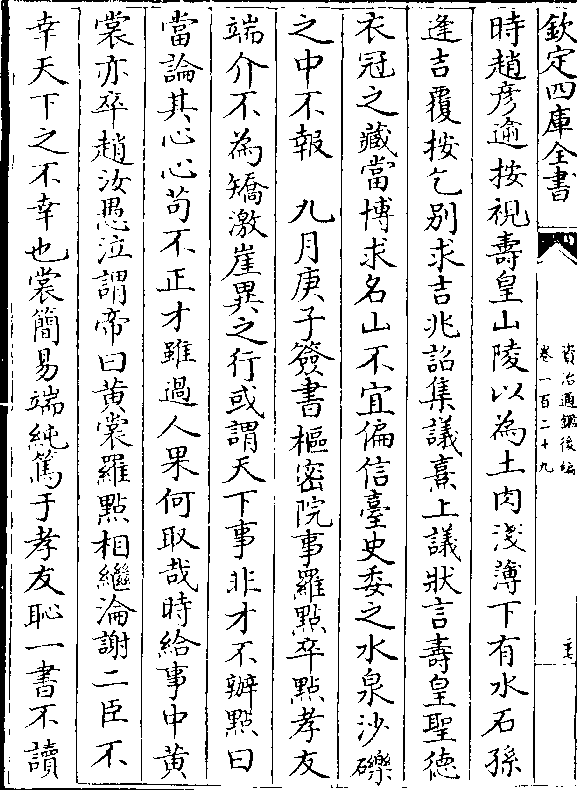 欽定四庫全書
資治通鑑後編
卷一百二十九
時趙彦逾按視壽皇山陵以為土肉淺薄下有水石孫
逢吉覆按乞别求吉兆詔集議熹上議狀言壽皇聖德
衣冠之藏當博求名山不宜偏信臺史委之水泉沙礫
之中不報　九月庚子簽書樞密院事羅點卒點孝友
端介不為矯激崖異之行或謂天下事非才不辦點曰
當論其心心苟不正才雖過人果何取哉時給事中黄
裳亦卒趙汝愚泣謂帝曰黄裳羅點相繼淪謝二臣不
幸天下之不幸也裳簡易端純篤于孝友恥一書不讀